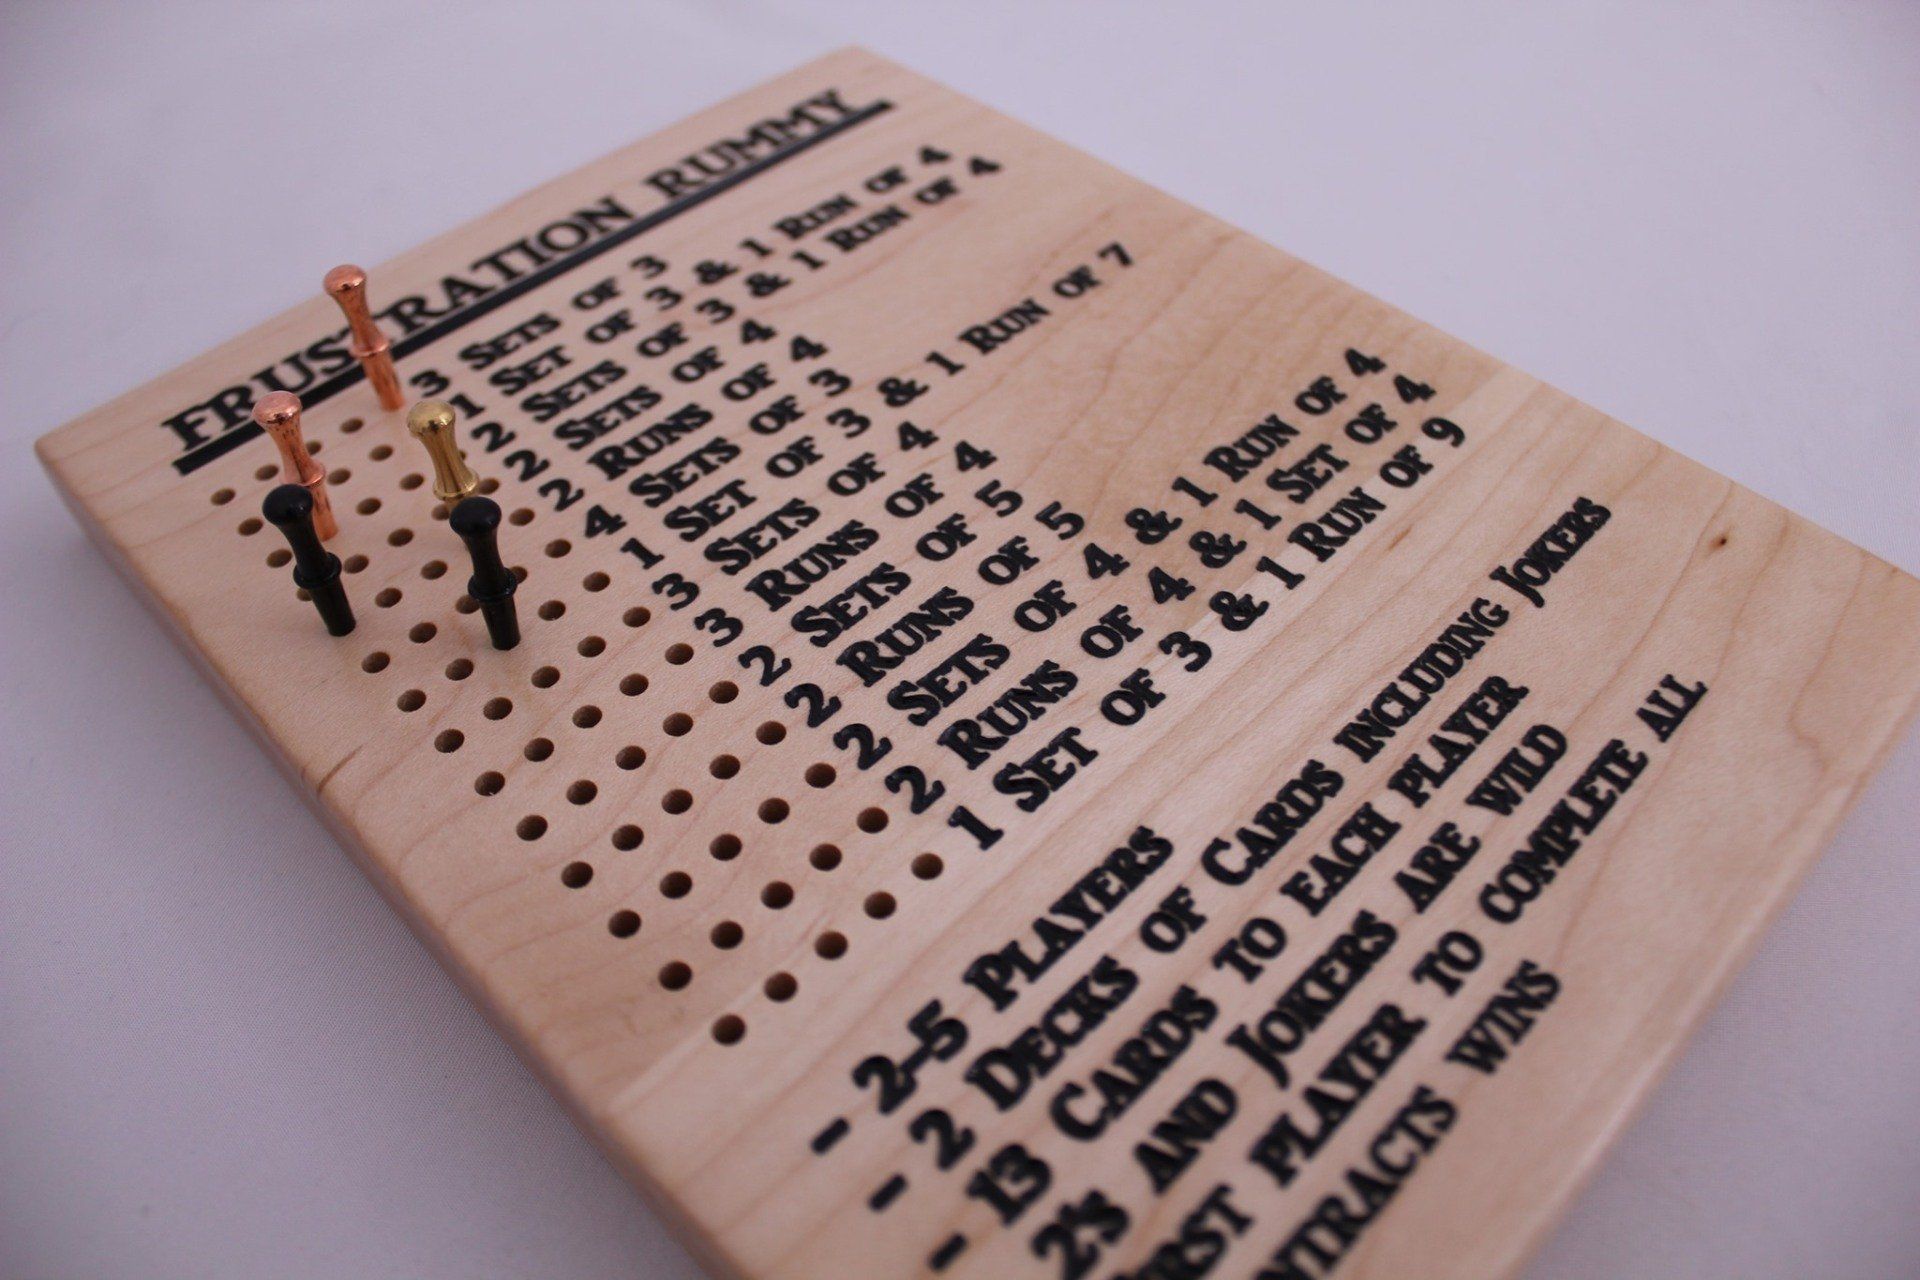 FRUSTRATION RUMMY
3 SETS OF 3
1 SET OF 3 & 1 RUN OF 4
2 SETS OF 3 & 1 RUN OF 4
2 SETS OF 4
2 RUNS OF 4
4 SETS OF 3
1 SET OF 3 & 1 RUN OF 7
3 SETS OF 4
3 RUNS OF 4
2 SETS OF 5
2 RUNS OF 5
2 SETS OF 4 & 1 RUN OF 4
2 RUNS OF 4 & 1 SET OF 4
1 SET OF 3 & 1 RUN OF 9
- 2-5 PLAYERS
- 2 DECKS OF CARDS INCLUDING JOKERS
- 13 CARDS TO EACH PLAYER
2'S AND JOKERS ARE WILD
PLAYER TO COMPLETE ALL
WINS